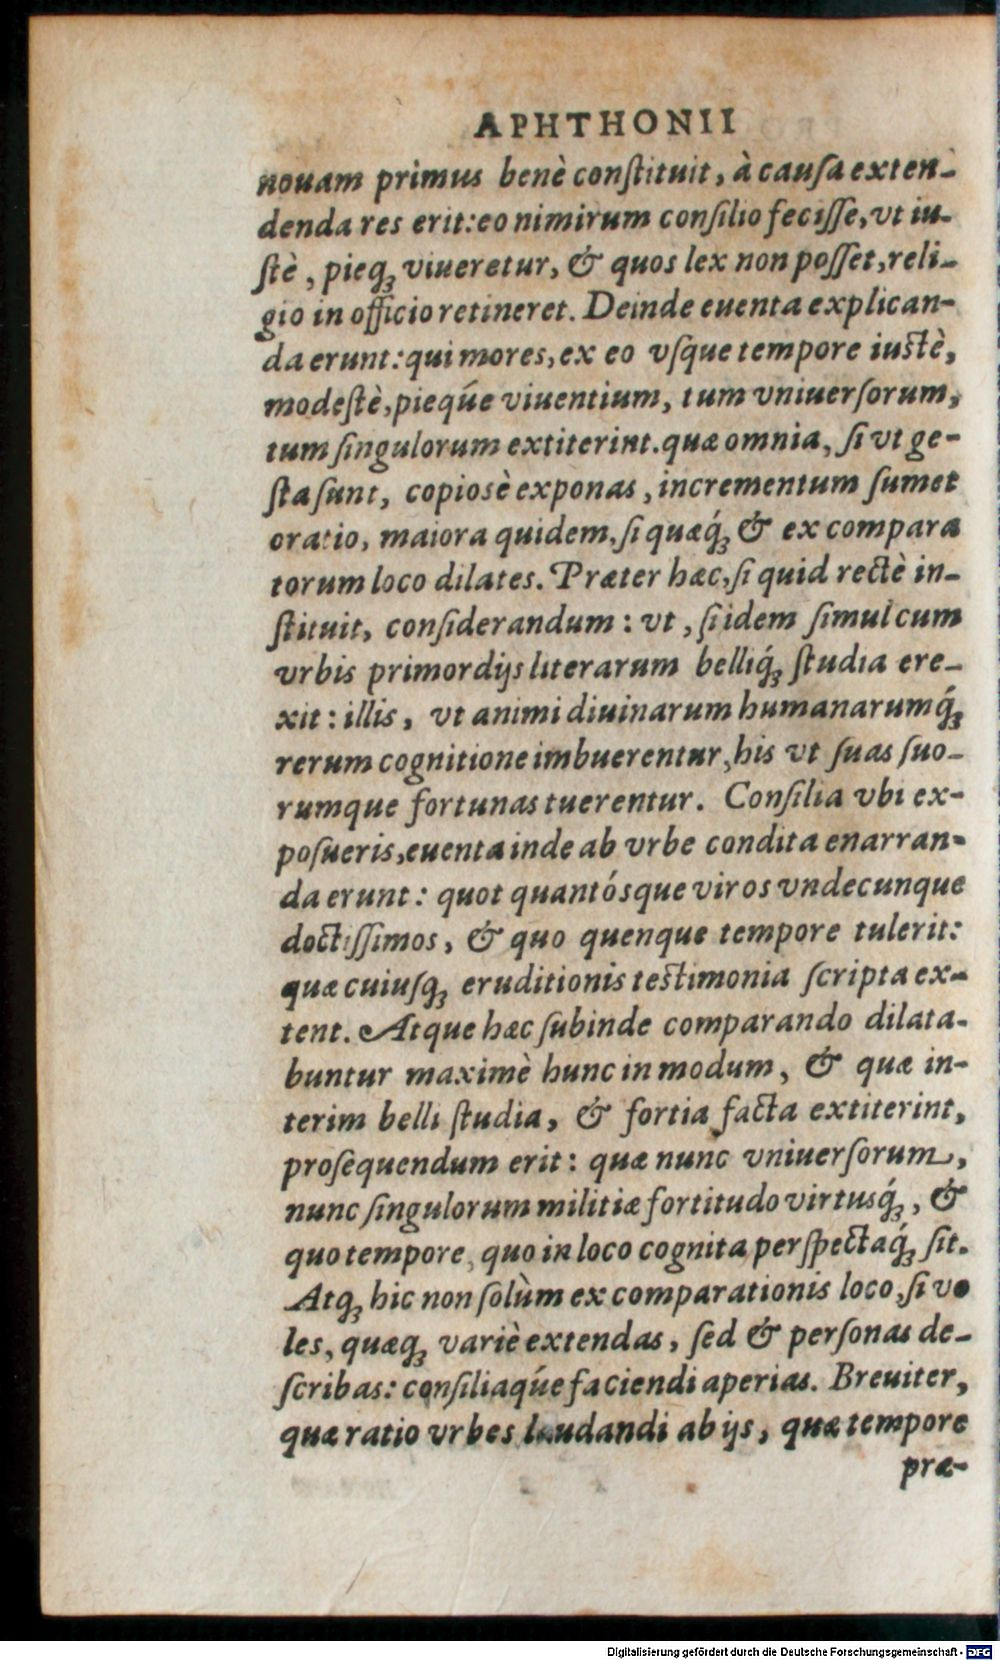 APHTHONII
nouam primus benè conſtituit, à cauſa exten-
denda res erit: eo nimirum conſilio feciſſe, vt iu-
ſtè, pieq́ꝫ viueretur, & quos lex non poſſet, reli-
gio in officio retineret. Deinde euenta explican-
da erunt: qui mores, ex eo vſque tempore iustè,
modeſtè, pieq́ue viuentium, tum vniuerſorum,
tum ſingulorum extiterint. quæ omnia, ſi vt ge-
ſta ſunt, copioſè exponas, incrementum ſumet
oratio, maiora quidem, ſi quæq́ꝫ & ex compara
torum loco dilates. Præter hæc, ſi quid rectè in-
ſtituit, conſiderandum: vt, ſi idem ſimul cum
vrbis primordijs literarum belliq́ꝫ ſtudia ere-
xit: illis, vt animi diuinarum humanarumq́ꝫ
rerum cognitione imbuerentur, his vt ſuas ſuo-
rumque fortunas tuerentur. Conſilia vbi ex-
poſueris, euenta inde ab vrbe condita enarran-
da erunt: quot quantósque viros vndecunque
doctiſſimos, & quo quenque tempore tulerit:
quæ cuiuſqꝫ eruditionis testimonia ſcripta ex-
tent. Atque hæc ſubinde comparando dilata-
buntur maximè hunc in modum, & quæ in-
terim belli ſtudia, & fortia facta extiterint,
proſequendum erit: quæ nunc vniuerſorum,
nunc ſingulorum militiæ fortitudo virtusq́ꝫ, &
quo tempore, quo in loco cognita perſpectaq́ꝫ ſit.
Atqꝫ hic non ſolùm ex comparationis loco, ſi ve
les, quæqꝫ variè extendas, ſed & perſonas de-
ſcribas: conſiliaq́ue faciendi aperias. Breuiter,
quæ ratio vrbes laudandi ab ijs, quæ tempore
præ-
Digitalisierung gefördert durch die Deutsche Forschungsgemeinschaft - DFG